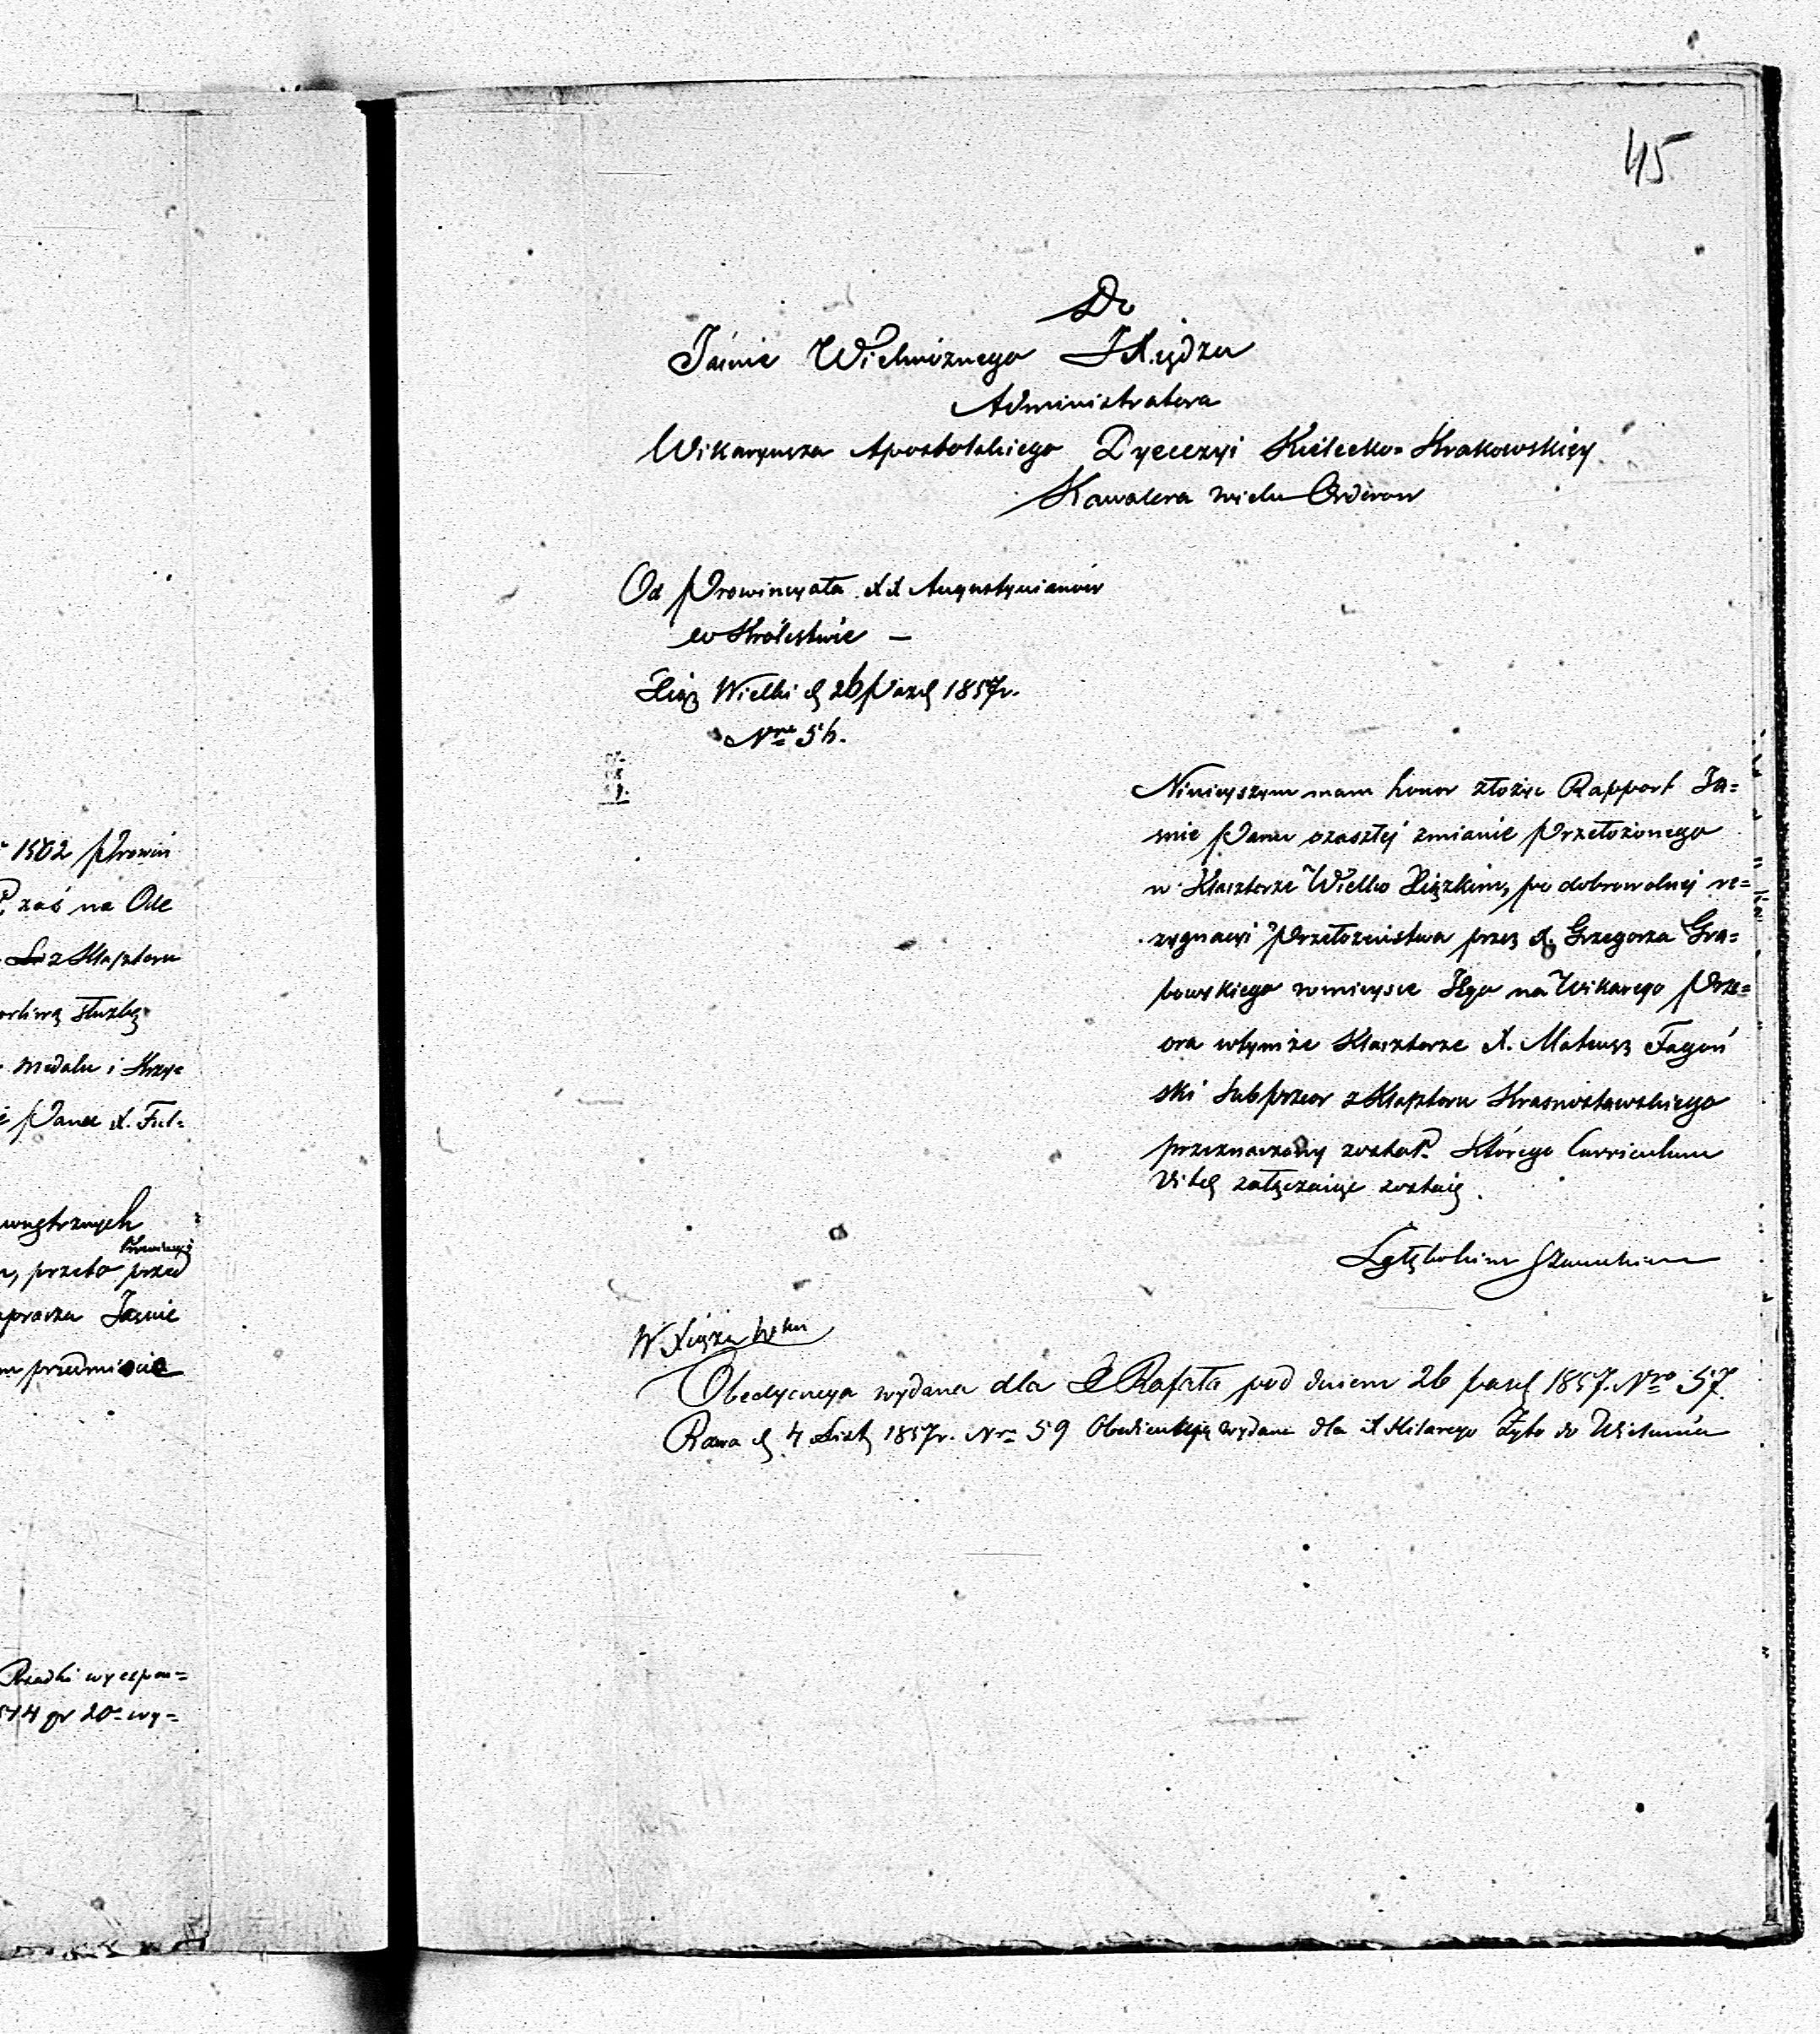 1502 Prowin
zaś na Ode
z Klasztoru
orliwą służbę
medalu i Krzyż
Panu X. Ful=
ewnętrznych
przeto przed
upraszam Jaśnie
przedmiocie
Rządki wyexpen=
544 gr 20 wy=
45
Do
Jaśnie Wielmożnego JXiędza
Administratora
Wikaryusza Apostolskiego Dyecezyi Kielecko-Krakowskiey
Kawalera wielu Orderow
Od Prowincyała XX Augustyianów
w Królestwie —
Xiąż Wielki d 26 Pazd 1857r.
Nro 56.
Ninieyszym mam honor złożyc Rapport Ja=
snie Panu ozaszłej zmianie Przełożonego
w Klasztorze Wielko Xiązkim, po dobrowolnej re=
zygnacyi Przełożeństwa przez X. Grzegorza Gra=
bowskiego wmieysce Jego na Wikarego Prze=
ora wtymże Klasztorze X. Mateusz Fagań
ski Subprzeor z Klasztoru Krasnostawskiego
przeznaczony został. Którego Curriculum
Vitę załączając zostaię.
Zgłębokim Szacunkiem
W. Xięża
Obedyencya wydana dla X Rafała pod dniem 26 pazd 1857. Nro 57.
Rawa d 4 List 1857r. Nro 59 Obediencyą wydana dla X Hilarego Zyto do Wielunia